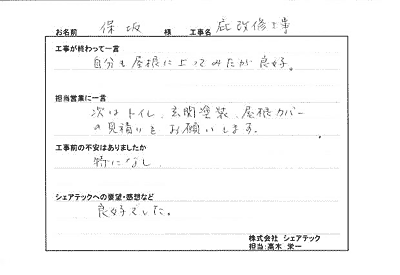 お名前 保坂 様 工事名 庇改修工事
工事が終わって一言
自分も屋根に上ってみたが良好。
担当営業に一言
次はトイレ、玄関塗装、屋根カバー
の見積りをお願いします。
工事前の不安はありましたか
特になし
シェアテックへの要望・感想など
良好でした。
株式会社 シェアテック
担当:高木 栄一